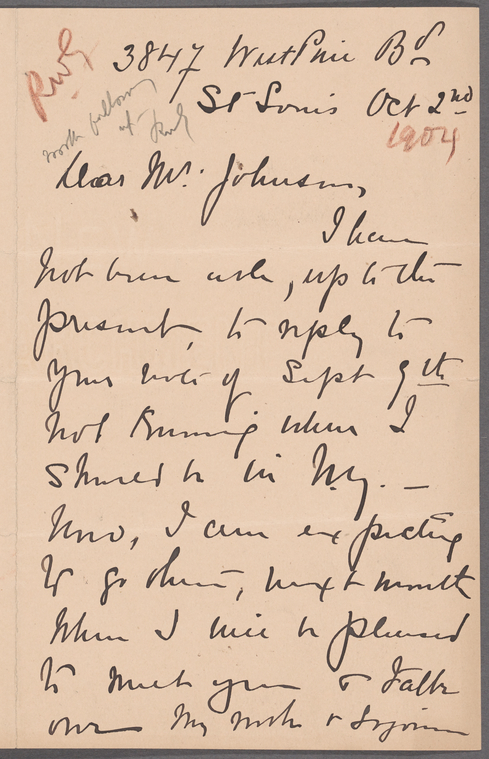 RWG
3847 West Pine Bd
St Louis Oct 2nd
1904
work follow
at
Dear Mr. Johnson,
I have
not been able, up to the
present, to reply to
your note of Sept 9th
not knowing when I
should be in N.Y. —
Now, I am expecting
to go there, next month
when I will be pleased
to meet you & talk
over my work & sojourn